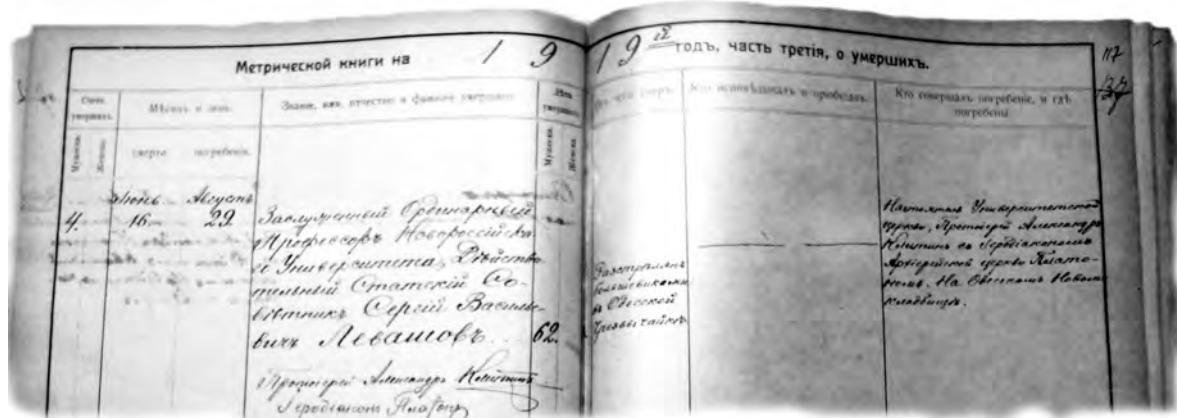 Метрической книги на 1 9 19 годъ, часть третія, о умершихъ.
117
37
Счетъ умершихъ.
Мѣсяцъ и день.
Званіе, имя, отчество и фамилія умершаго.
Лѣта умершаго.
Отъ чего умеръ.
Кто исповѣдывалъ и пріобщалъ.
Кто совершалъ погребеніе, и гдѣ
погребены.
Мужеска.
Женска.
смерти
погребенія.
Мужеска.
Женска.
Августъ
4. 16. 29
Заслуженный Ординарный
Профессоръ Новороссійска-
го Университета, Дѣйстви-
тельный Статскій Со-
вѣтникъ Сергій Василье-
вичъ Левашовъ. 62.
Протоіерей Александръ Клитинъ
Іеродіаконъ Платонъ
Разстрѣлянъ
большевиками
въ Одесской
Чрезвычайкѣ
Настоятель Университетской
церкви, Протоіерей Александръ
Клитинъ съ Іеродіакономъ
Архіерейской церкви Плато-
номъ. На Новомъ
кладбищѣ.